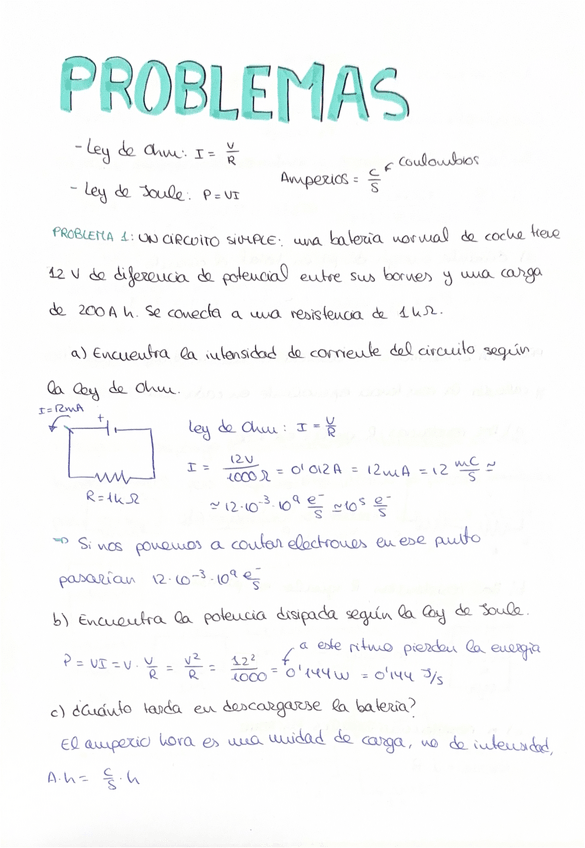 PROBLEMAS
- Ley de Ohm: I = V/R
Amperios = C/S coulombios
- Ley de Joule: P = VI
PROBLEMA 1: UN CIRCUITO SIMPLE: una bateria normal de coche tiene
12 V de diferencia de potencial entre sus bornes y una carga
de 200 A h. Se conecta a una resistencia de 1 kΩ.
a) Encuentra la intensidad de corriente del circuito según
la ley de Ohm.
I = 12mA
+
R = 1k Ω
Ley de Ohm: I = V/R
I = 12V/1000 Ω = 0'012A = 12mA = 12 mC/S ≃
≃ 12·10⁻³·10⁹ e⁻/S ≃ 10⁵ e⁻/S
⇒ Si nos ponemos a contar electrones en ese punto
pasarían 12·10⁻³·10⁹ e⁻/S
b) Encuentra la potencia disipada según la ley de Joule.
a este ritmo pierden la energía
P = VI = V · V/R = V²/R = 12²/1000 = 0'144 W = 0'144 J/S
c) ¿Cuánto tarda en descargarse la batería?
El amperio hora es una unidad de carga, no de intensidad.
A·h = C/S · h